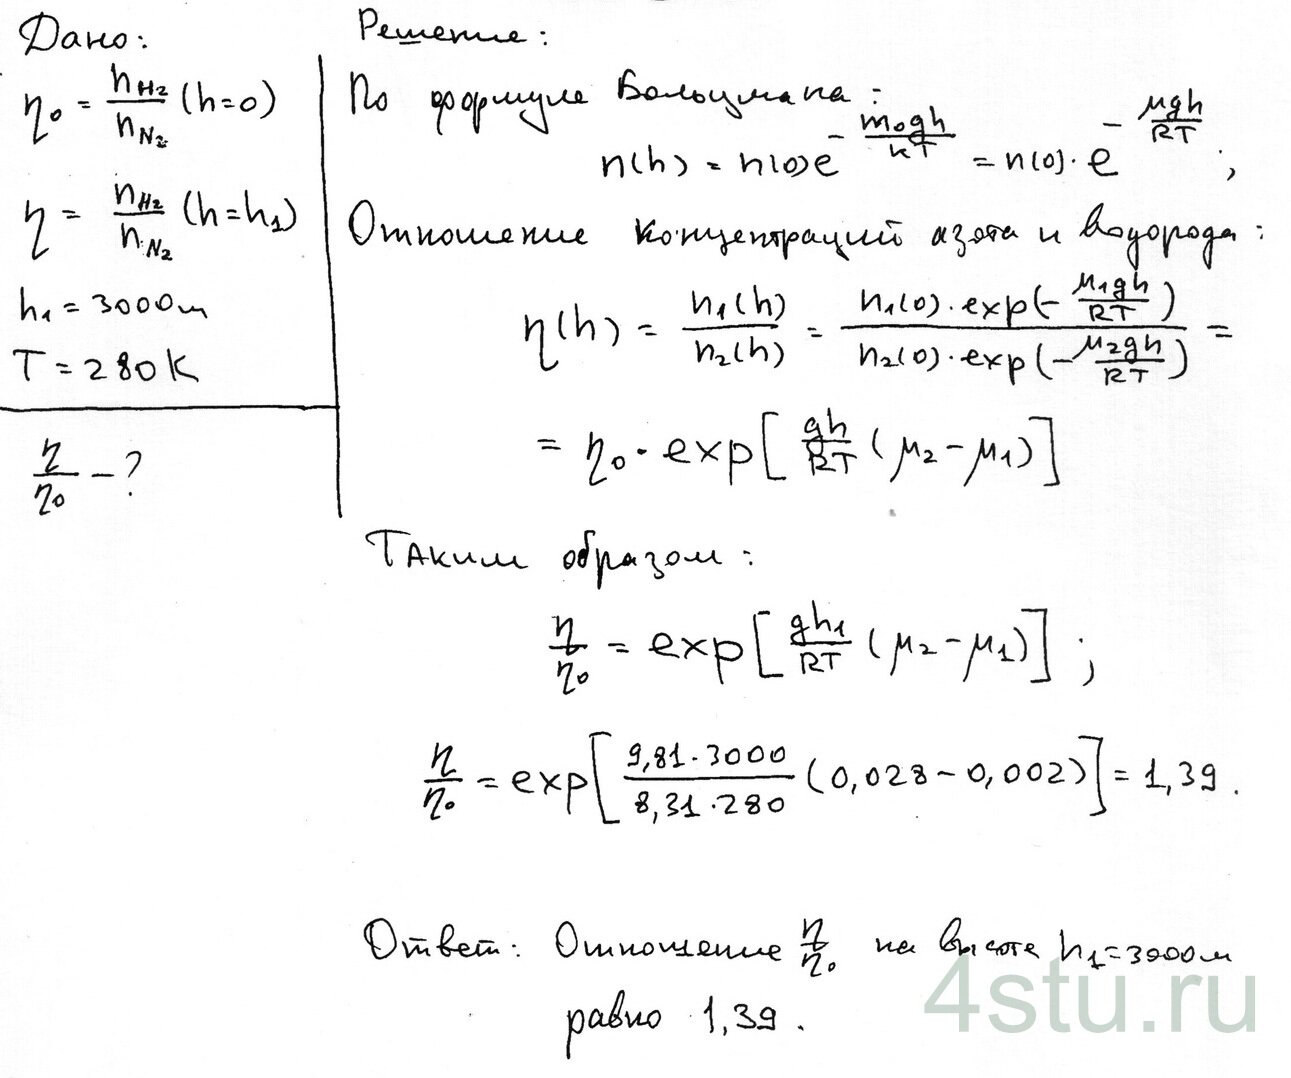 Дано:
η₀ = n_H₂/n_N₂ (h=0)
η = n_H₂/n_N₂ (h=h₁)
h₁ = 3000м
T = 280K
η/η₀ – ?
Решение:
По формуле Больцмана:
n(h) = n(0)e^(-m₀gh/kT) = n(0)·e^(-μgh/RT);
Отношение концентраций азота и водорода:
η(h) = n₁(h)/n₂(h) = n₁(0)·exp(-μ₁gh/RT)/n₂(0)·exp(-μ₂gh/RT) =
= η₀·exp[gh/RT(μ₂-μ₁)]
Таким образом:
η/η₀ = exp[gh₁/RT(μ₂-μ₁)];
η/η₀ = exp[9,81·3000/8,31·280(0,028-0,002)] = 1,39.
Ответ: Отношение η/η₀ на высоте h₁=3000м
равно 1,39.
4stu.ru